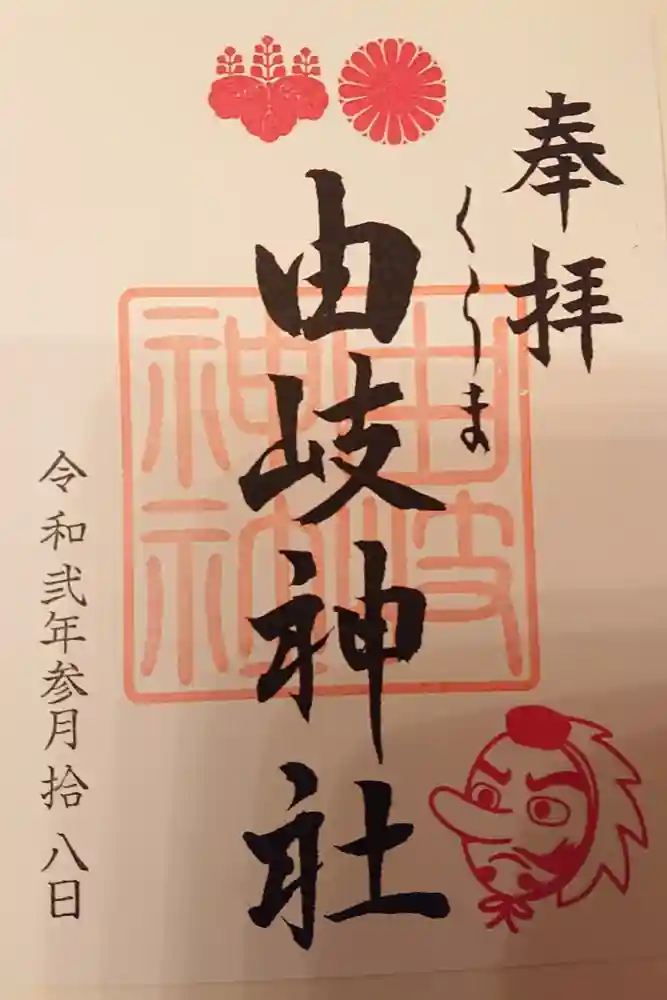 奉拝
くらま
由岐神社
由岐神社
令和弐年参月拾八日